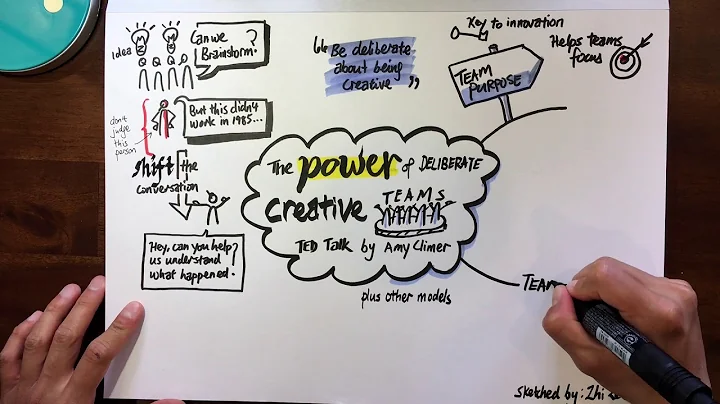 Idea
Can we
Brainstorm?
But this didn't
work in 1985...
don't
judge
this
person
shift the
conversation
Hey, can you help
us understand
what happened?
"Be deliberate
about being
creative"
Key to innovation
TEAM
PURPOSE
Helps teams
focus
The power of DELIBERATE
creative TEAMS
TED Talk by Amy Climer
plus other models
TEAM
sketched by: Zhi